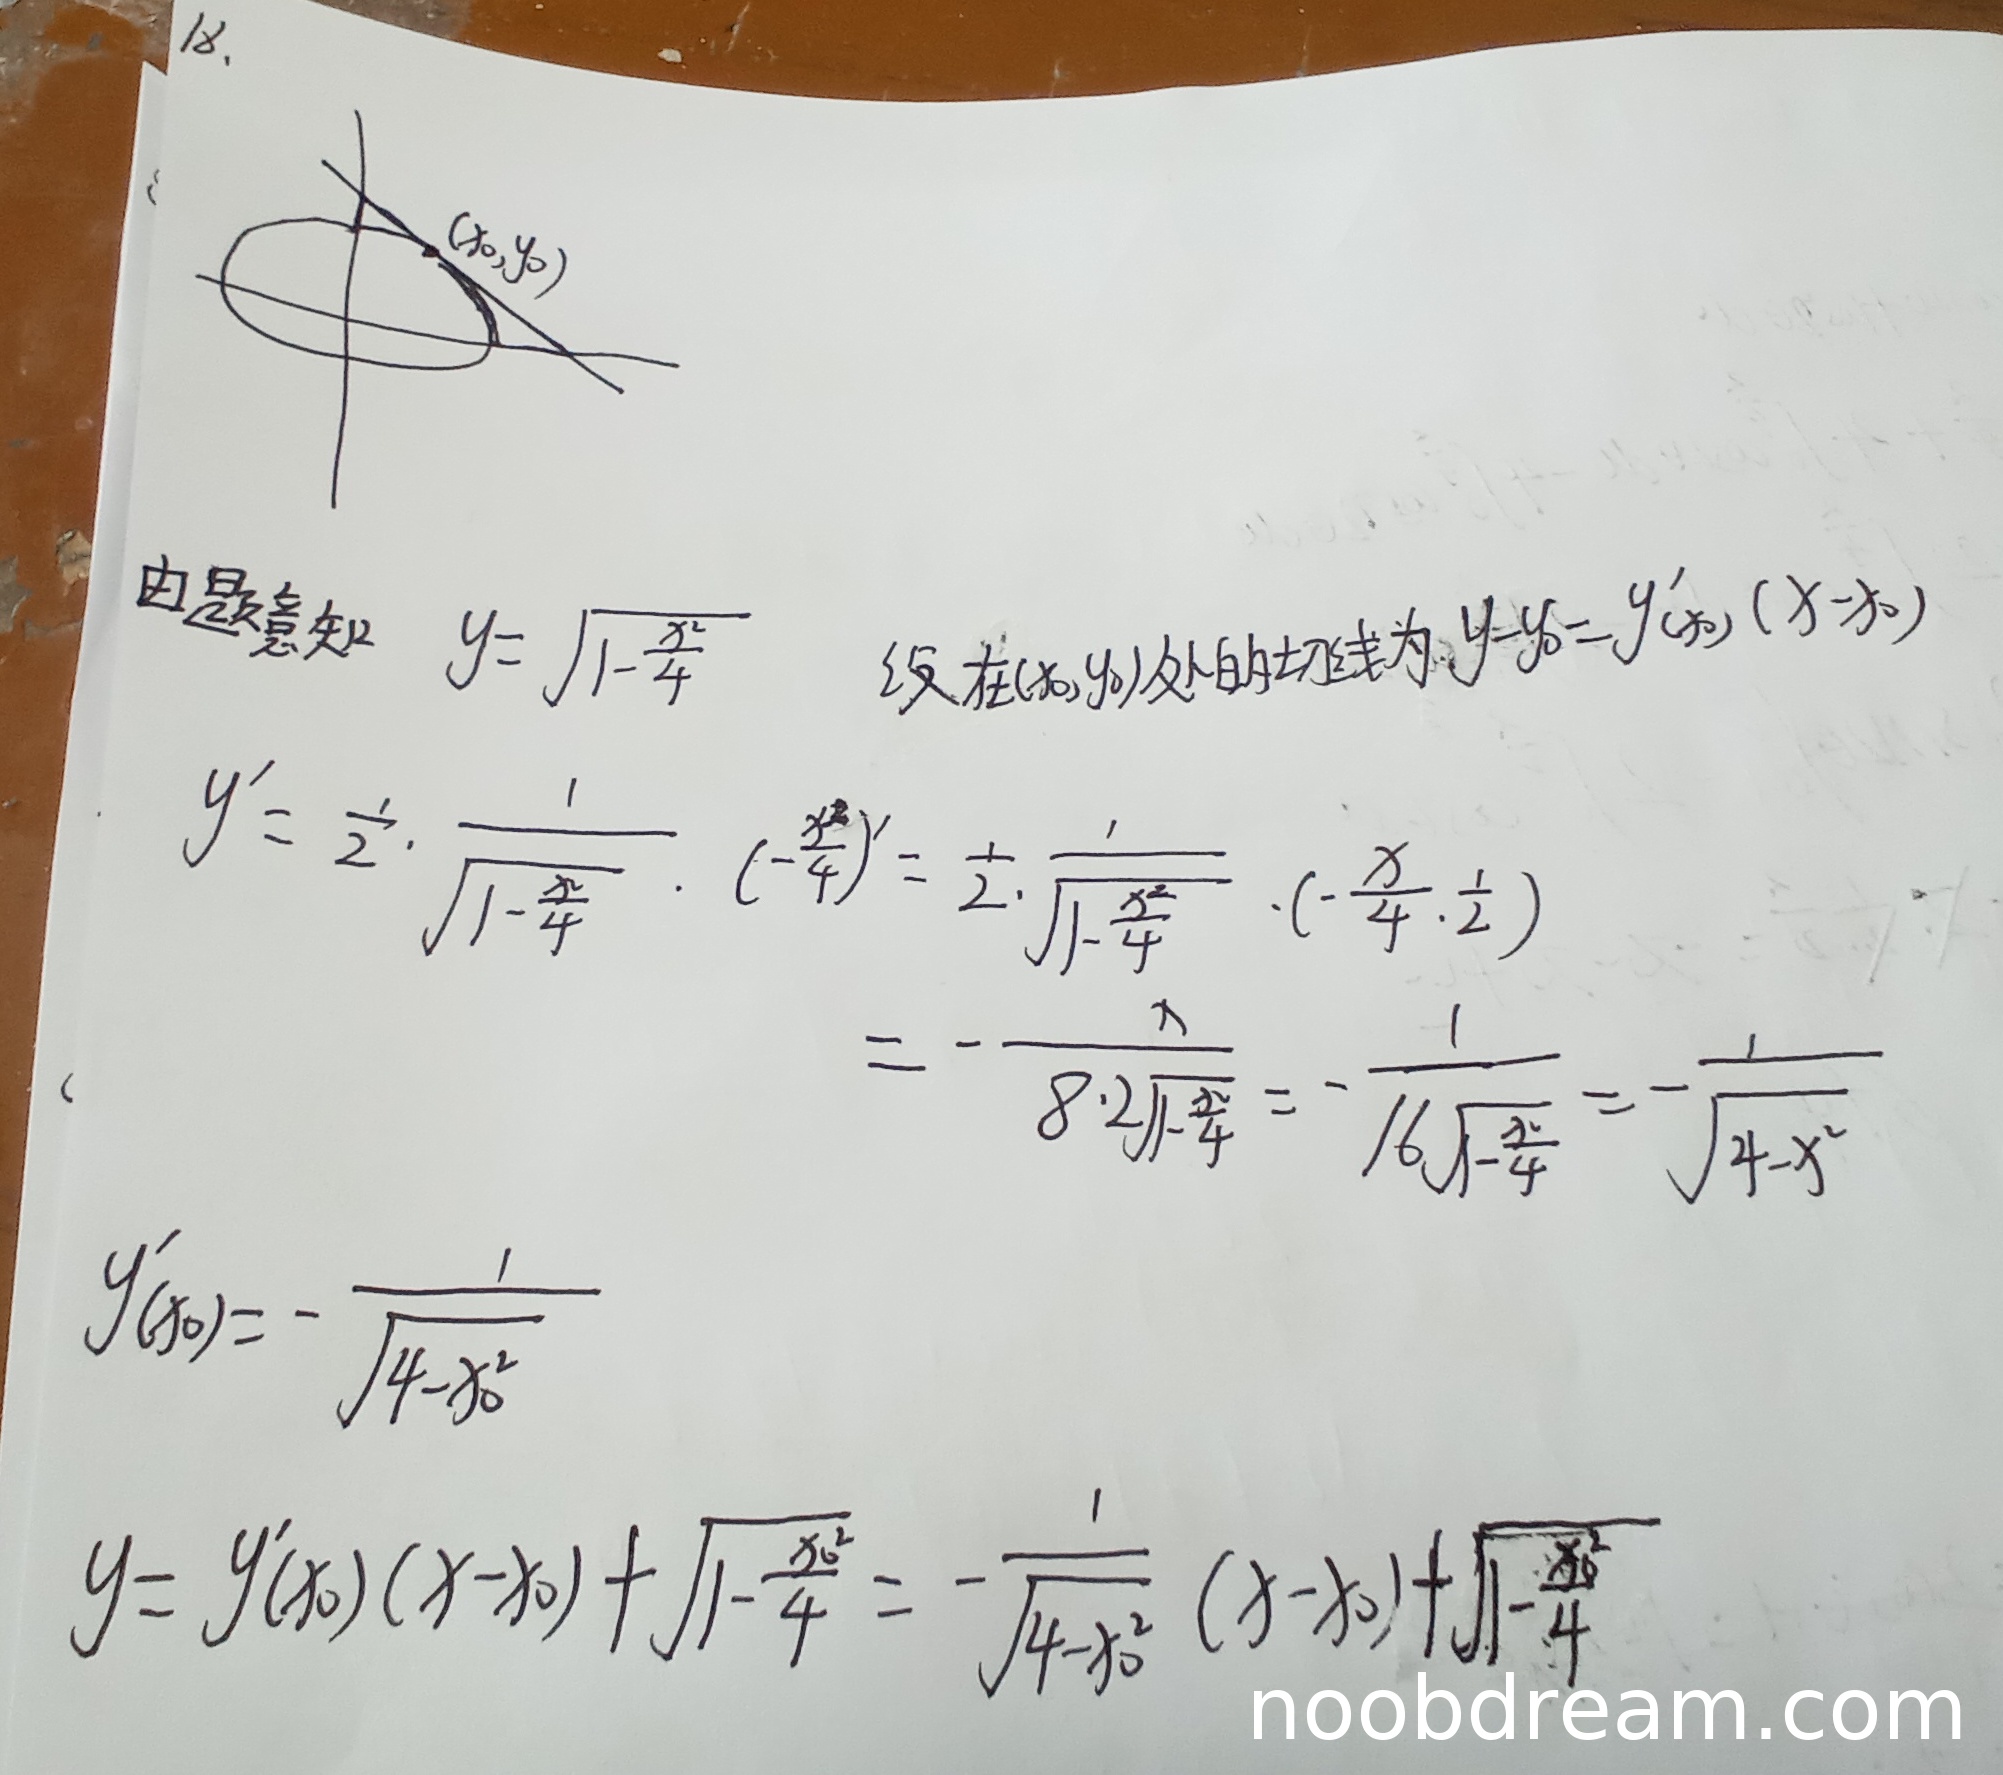 18.
(x₀,y₀)
由题意知 y=√(1-x²/4) 设在(x₀,y₀)处的切线为 y-y₀=y'(x₀)(x-x₀)
y'=1/2·1/√(1-x²/4)·(-x²/4)'=1/2·1/√(1-x²/4)·(-x/4·1/2)
=-x/(8·2√(1-x²/4))=-1/(16√(1-x²/4))=-1/√(4-x²)
y'(x₀)=-1/√(4-x₀²)
y=y'(x₀)(x-x₀)+√(1-x₀²/4)=-1/√(4-x₀²)(x-x₀)+√(1-x₀²/4)
noobdream.com